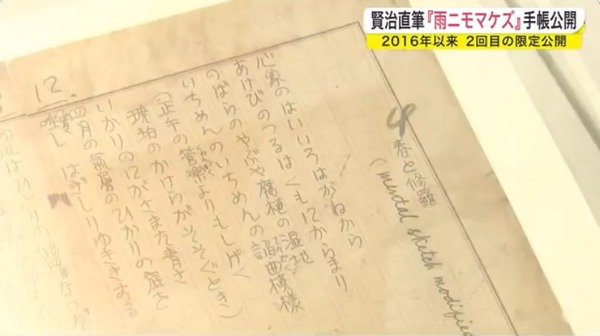 賢治直筆『雨ニモマケズ』手帳公開
2016年以来 2回目の限定公開
4
春と修羅
(mental sketch modified
心象のはいいろはがねから
あけびのつるはくもにからまり
のばらのやぶや腐植の湿地
いちめんのいちめんの諂曲模様
(正午の管楽よりもしげく
琥珀のかけらがそそぐとき)
いかりのにがさまた青さ
四月の氣層のひかりの底を
唾し はぎしりゆききする
12.
はひとりの